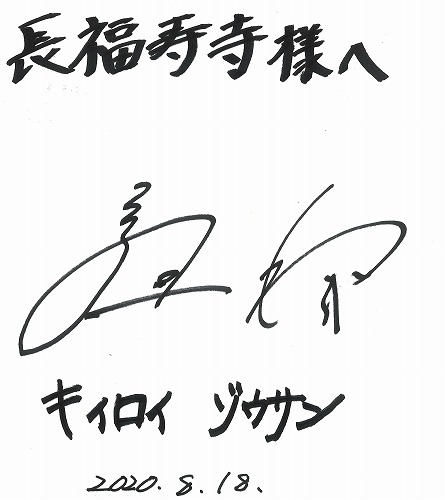 長福寿寺様へ
キイロイ ゾウサン
2020.8.18.